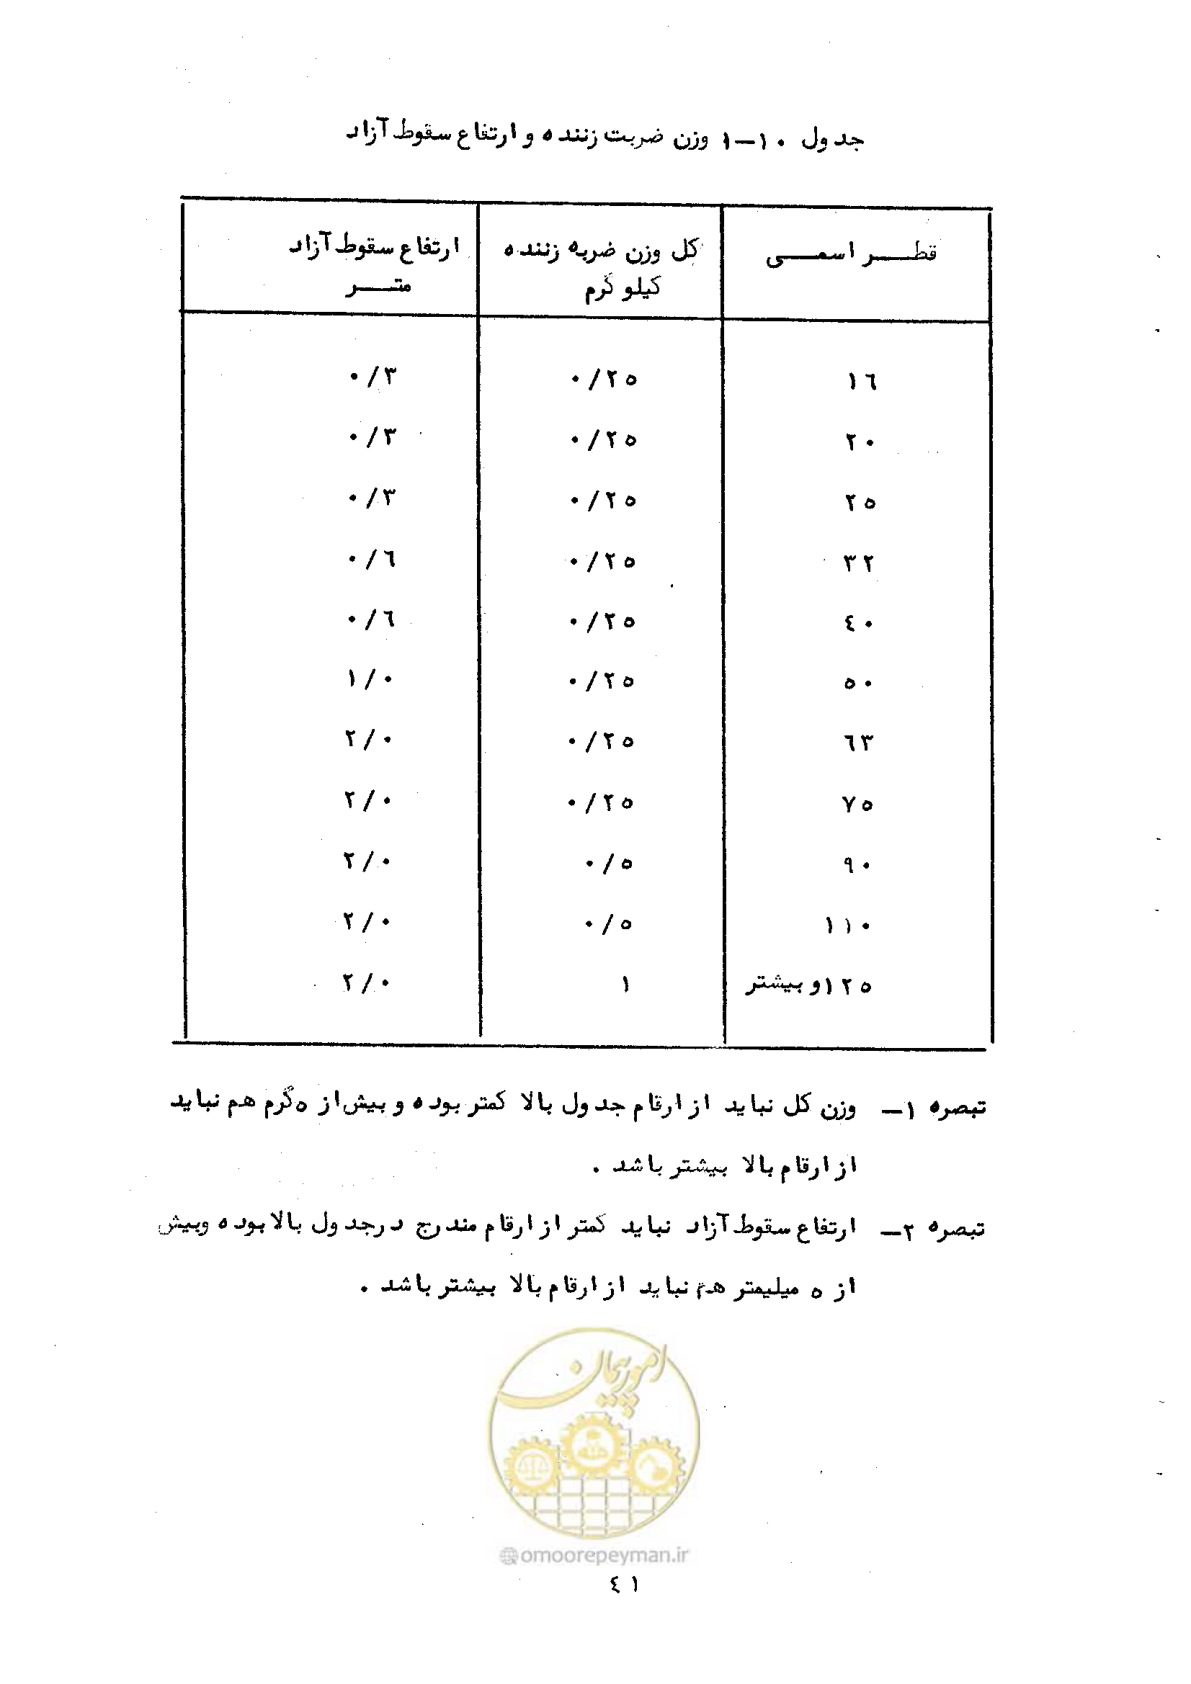 جدول ۱۰–۱ وزن ضربت زننده و ارتفاع سقوط آزاد
قطـــر اسمـــی	کل وزن ضربه زننده	ارتفاع سقوط آزاد
کیلو گرم	متـــر
١٦	۰/۲۵	۰/۳
۲۰	۰/۲۵	۰/۳
۲۵	۰/۲۵	۰/۳
۳۲	۰/۲۵	۰/٦
٤۰	۰/۲۵	۰/٦
۵۰	۰/۲۵	۱/۰
٦۳	۰/۲۵	۲/۰
۷۵	۰/۲۵	۲/۰
۹۰	۰/۵	۲/۰
۱۱۰	۰/۵	۲/۰
۱۲۵ و بیشتر	۱	۲/۰
تبصره ۱– وزن کل نباید از ارقام جدول بالا کمتر بوده و بیش از ۵ گرم هم نباید
از ارقام بالا بیشتر باشد .
تبصره ۲– ارتفاع سقوط آزاد نباید کمتر از ارقام مندرج در جدول بالا بوده و بیش
از ۵ میلیمتر هم نباید از ارقام بالا بیشتر باشد .
امور پیمان
@omoorepeyman.ir
٤۱